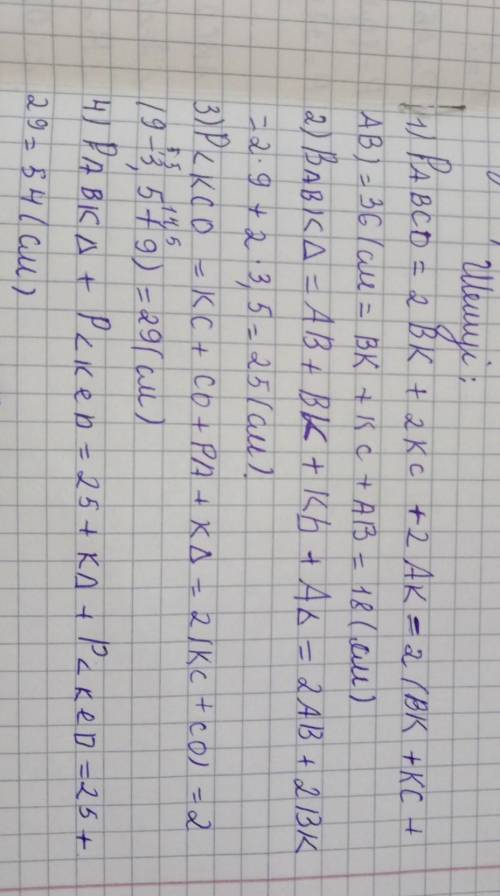 Шешуі;
1) PABCD = 2BK + 2KC + 2AK = 2(BK + KC +
AB) = 36(см = BK + KC + AB = 18(см)
2) PABKΔ = AB + BK + Kh + AΔ = 2AB + 2BK
= 2·9 + 2·3,5 = 25(см).
3) P<KCO = KC + CD + PA + KΔ = 2(KC + CO) = 2
5,5 14,5
(9 - 3,5 + 9) = 29(см)
4) PABKΔ + P<KeD = 25 + KΔ + P<KeD = 25 +
29 = 54(см)